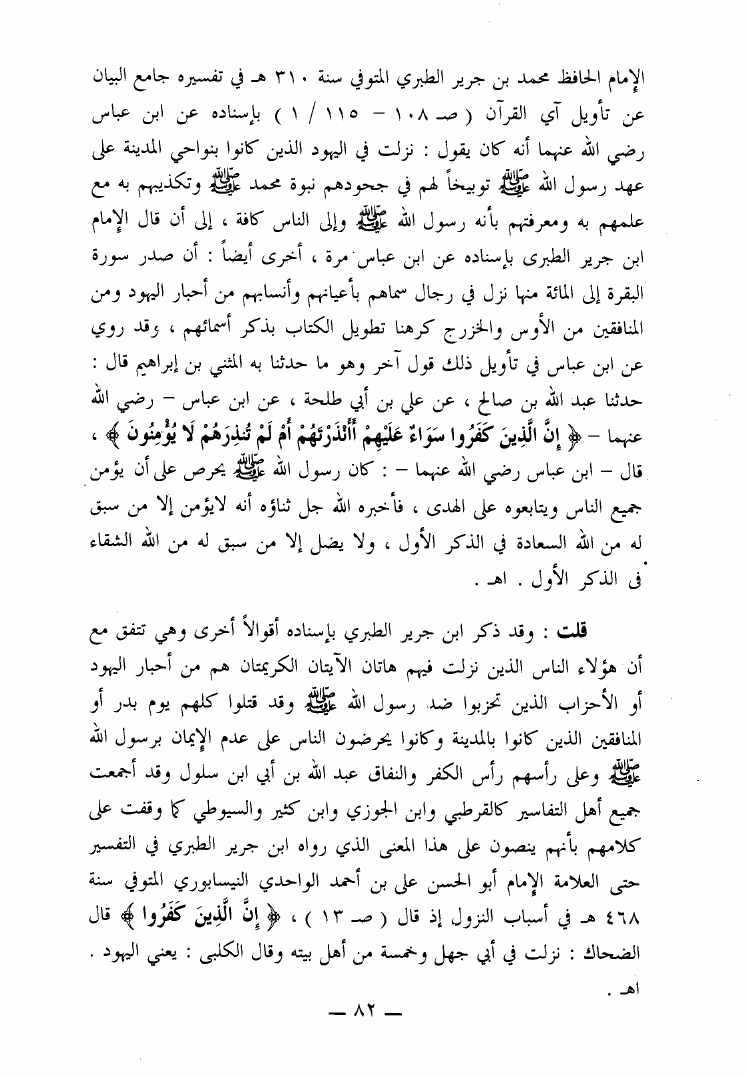 الإمام الحافظ محمد بن جرير الطبري المتوفي سنة ٣١٠ هـ في تفسيره جامع البيان
عن تأويل آي القرآن ( صـ ١٠٨ – ١١٥ / ١ ) بإسناده عن ابن عباس
رضي الله عنهما أنه كان يقول : نزلت في اليهود الذين كانوا بنواحي المدينة على
عهد رسول الله ﷺ توبيخاً لهم في جحودهم نبوة محمد ﷺ وتكذيبهم به مع
علمهم به ومعرفتهم بأنه رسول الله ﷺ وإلى الناس كافة ، إلى أن قال الإمام
ابن جرير الطبرى بإسناده عن ابن عباس مرة ، أخرى أيضاً : أن صدر سورة
البقرة إلى المائة منها نزل في رجال سماهم بأعيانهم وأنسابهم من أحبار اليهود ومن
المنافقين من الأوس والخزرج كرهنا تطويل الكتاب بذكر أسمائهم ، وقد روي
عن ابن عباس في تأويل ذلك قول آخر وهو ما حدثنا به المثني بن إبراهيم قال :
حدثنا عبد الله بن صالح ، عن علي بن أبي طلحة ، عن ابن عباس – رضي الله
عنهما – ﴿ إِنَّ الَّذِينَ كَفَرُوا سَوَاءٌ عَلَيْهِمْ أَأَنْذَرْتَهُمْ أَمْ لَمْ تُنذِرْهُمْ لَا يُؤْمِنُونَ ﴾ ،
قال – ابن عباس رضي الله عنهما – : كان رسول الله ﷺ يحرص على أن يؤمن
جميع الناس ويتابعوه على الهدى ، فأخبره الله جل ثناؤه أنه لايؤمن إلا من سبق
له من الله السعادة في الذكر الأول ، ولا يضل إلا من سبق له من الله الشقاء
فى الذكر الأول . اهـ .
قلت : وقد ذكر ابن جرير الطبري بإسناده أقوالاً أخرى وهي تتفق مع
أن هؤلاء الناس الذين نزلت فيهم هاتان الآيتان الكريمتان هم من أحبار اليهود
أو الأحزاب الذين تحزبوا ضد رسول الله ﷺ وقد قتلوا كلهم يوم بدر أو
المنافقين الذين كانوا بالمدينة وكانوا يحرضون الناس على عدم الإيمان برسول الله
ﷺ وعلى رأسهم رأس الكفر والنفاق عبد الله بن أبي ابن سلول وقد أجمعت
جميع أهل التفاسير كالقرطبي وابن الجوزي وابن كثير والسيوطي كما وقفت على
كلامهم بأنهم ينصون على هذا المعنى الذي رواه ابن جرير الطبري في التفسير
حتى العلامة الإمام أبو الحسن على بن أحمد الواحدي النيسابوري المتوفي سنة
٤٦٨ هـ في أسباب النزول إذ قال ( صـ ١٣ ) ، ﴿ إِنَّ الَّذِينَ كَفَرُوا ﴾ قال
الضحاك : نزلت في أبي جهل وخمسة من أهل بيته وقال الكلبى : يعني اليهود .
اهـ .
— ٨٢ —